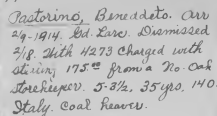 Pastorino, Beneddeto. Arr
2/9-1914. Gd. Larc. Dismissed
2/18. With 4273 charged with
stealing 175.00 from a No. Oak
storekeeper. 5-3½, 35 yrs. 140.
Italy. Coal heaver.